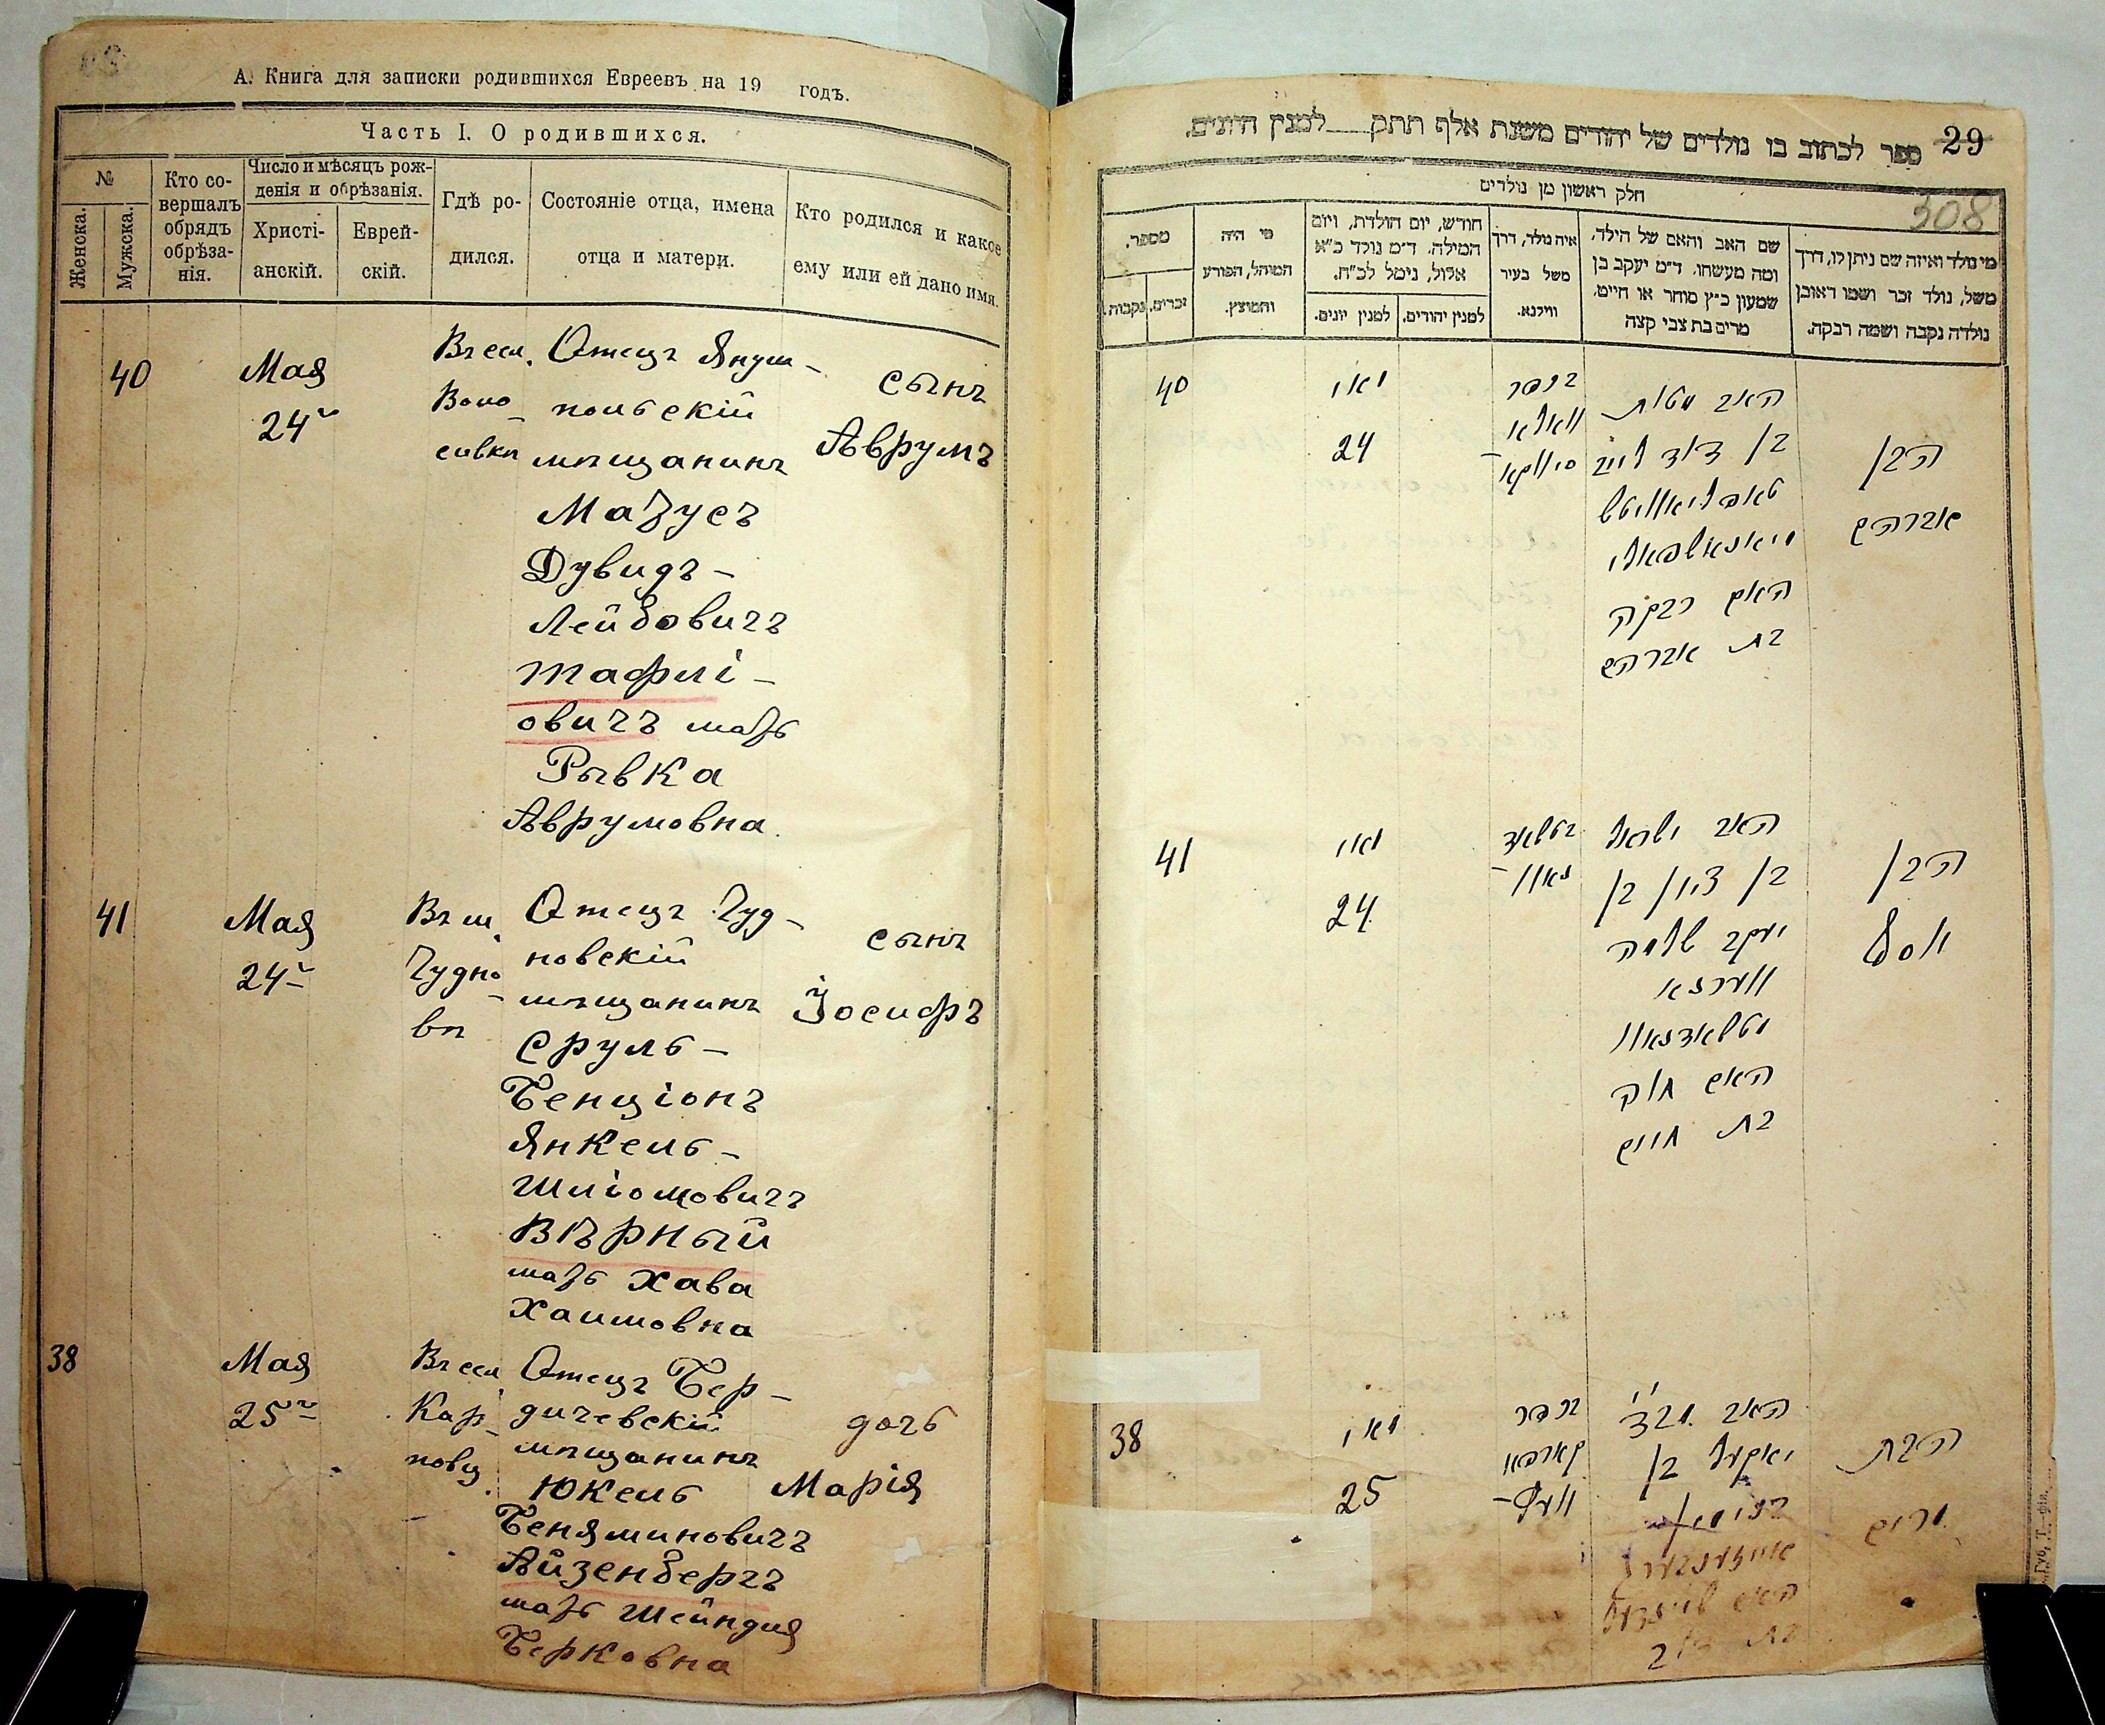 А. Книга для записки родившихся Евреевъ на 19 годъ.
Часть I. О родившихся.
№
Женска.
Мужска.
Кто со-
вершалъ
обрядъ
обрѣза-
нія.
Число и мѣсяцъ рож-
денія и обрѣзанія.
Христі-
анскій.
Еврей-
скій.
Гдѣ ро-
дился.
Состояніе отца, имена
отца и матери.
Кто родился и какое
ему или ей дано имя.
40
Мая
24
Въ сел.
Воло
Отецъ Януш-
польскій
мѣщанинъ
Матусъ
Дувидъ-
Лейбовичъ
Тафлі-
овичъ мать
Рывка
Аврумовна
сынъ
Аврумъ
41
Мая
24
Въ м.
Чудно
вѣ
Отецъ Чуд-
новскій
мѣщанинъ
Сруль-
Бенціонъ
Янкель-
Шліомовичъ
Вѣрный
мать Хава
Хаимовна
сынъ
Іосифъ
38
Мая
25
Въ сел
Кар-
повц.
Отецъ Бер-
дичевскій
мѣщанинъ
Юкель
Беняминовичъ
Айзенбергъ
мать Шейндля
Берковна
дочь
Марія
29
ספר לכתוב בו נולדים של יהודים משנת אלף תתק למנין היונים.
308
חלק ראשון מן נולדים
מי נולד ואיזה שם ניתן לו, דרך
משל, נולד זכר ושמו ראובן
נולדה נקבה ושמה רבקה.
שם האב והאם של הילד,
ומה מעשהו. ד״מ יעקב בן
שמעון כ״ץ סוחר או חייט,
מרים בת צבי קצה
איה נולד, דרך
משל בעיר
ווילנא.
חודש, יום הולדת, ויום
המילה. ד״מ נולד כ״א
אלול, נימל לכ״ח.
למנין יהודים.
למנין יונים.
מי היה
המוהל, הפורע
והמוצץ.
מספר.
זכרים.
נקבות.
40
מאי
24
בכפר
וואלא
סיווקא
האב מטות
בן דוד לייב
האם רבקה
בת אברהם
הבן
אברהם
41
מאי
24
האב ישראל
בן ציון בן
יעקב שלמה
האם חוה
בת חיים
הבן
יוסף
38
מאי
25
בכפר
קארפאו
האב
יאקעל בן
בנימין
אייזענבערג
הבת
מרים